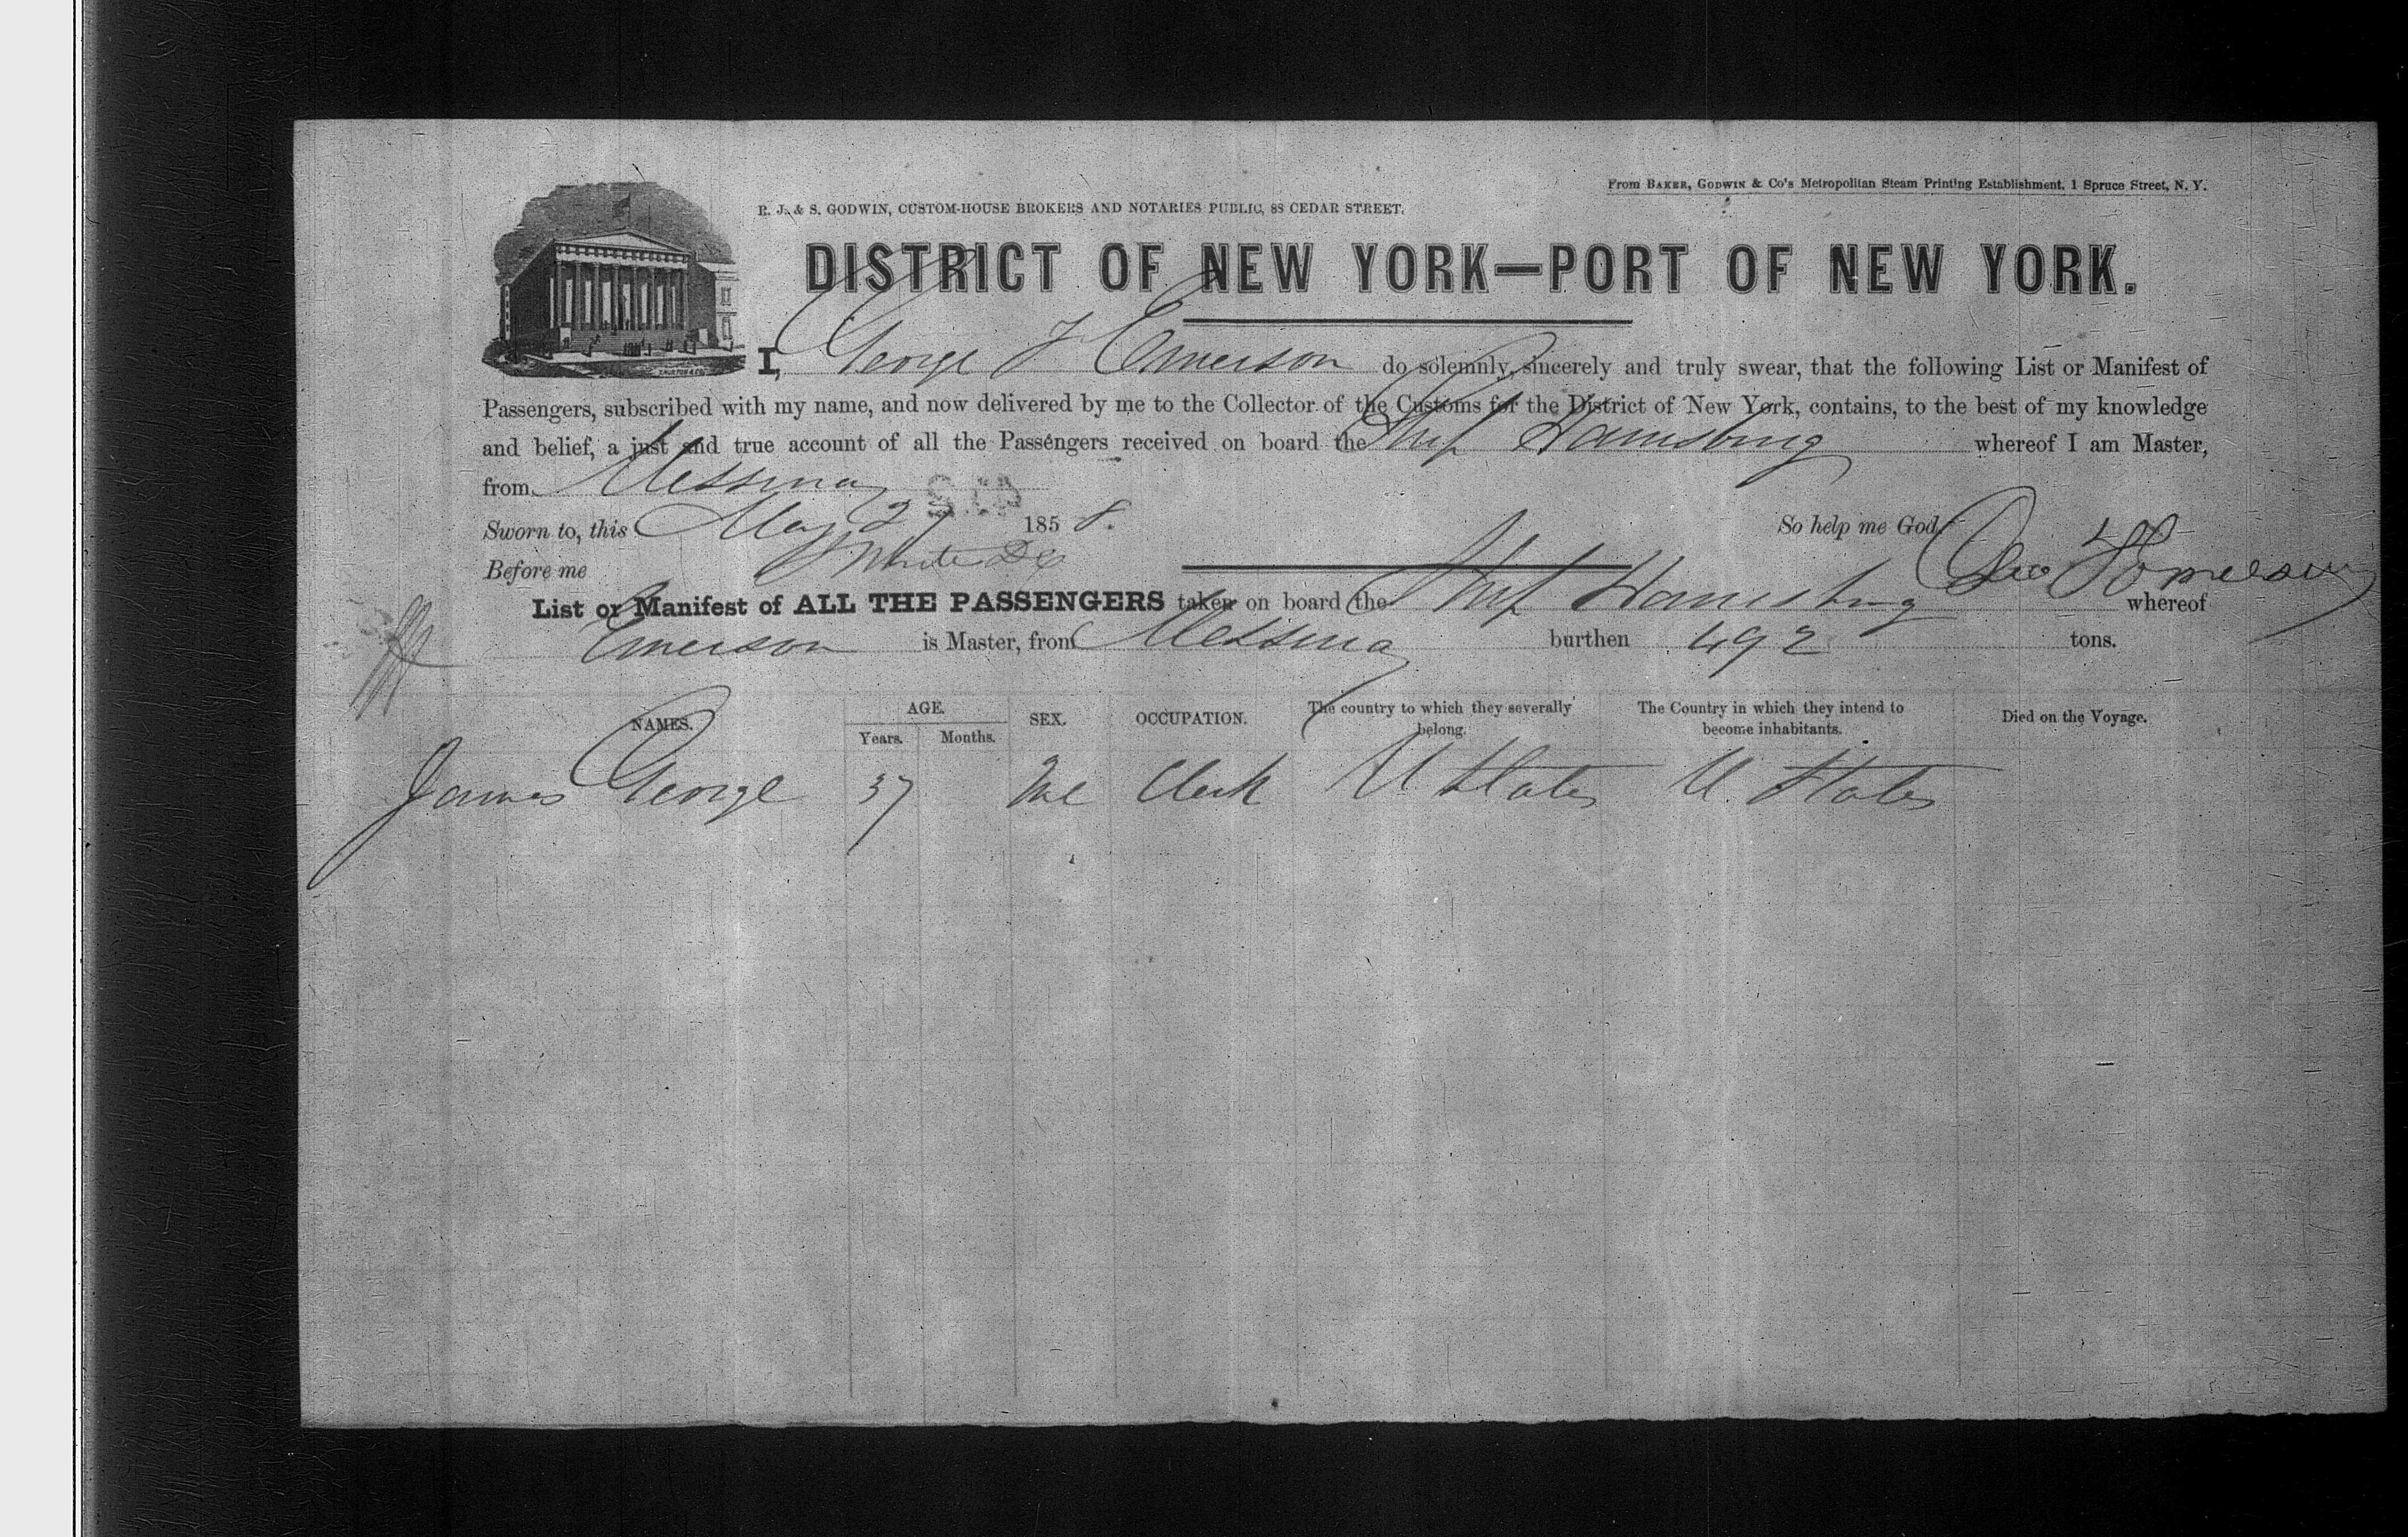 From BAKER, GODWIN & Co's Metropolitan Steam Printing Establishment, 1 Spruce Street, N. Y.
R. J. & S. GODWIN, CUSTOM-HOUSE BROKERS AND NOTARIES PUBLIC, 88 CEDAR STREET.
DISTRICT OF NEW YORK—PORT OF NEW YORK.
I, George F Emerson do solemnly, sincerely and truly swear, that the following List or Manifest of
Passengers, subscribed with my name, and now delivered by me to the Collector of the Customs for the District of New York, contains, to the best of my knowledge
and belief, a just and true account of all the Passengers received on board the Ship Harrisburg whereof I am Master,
from Messina
Sworn to, this May 27 1858. So help me God,
Before me White Geo F Emerson
List or Manifest of ALL THE PASSENGERS taken on board the Ship Harrisburg whereof
Emerson is Master, from Messina burthen 492 tons.
NAMES. AGE. Years. Months. SEX. OCCUPATION. The country to which they severally belong. The Country in which they intend to become inhabitants. Died on the Voyage.
James George 37 Mle Clerk U States U. States